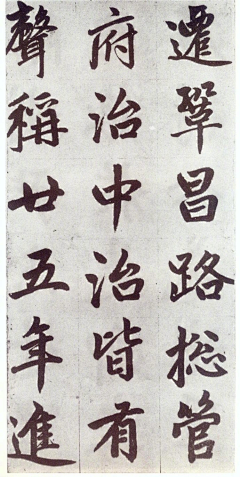 遷鞏昌路総管
府治中治皆有
聲稱廿五年進